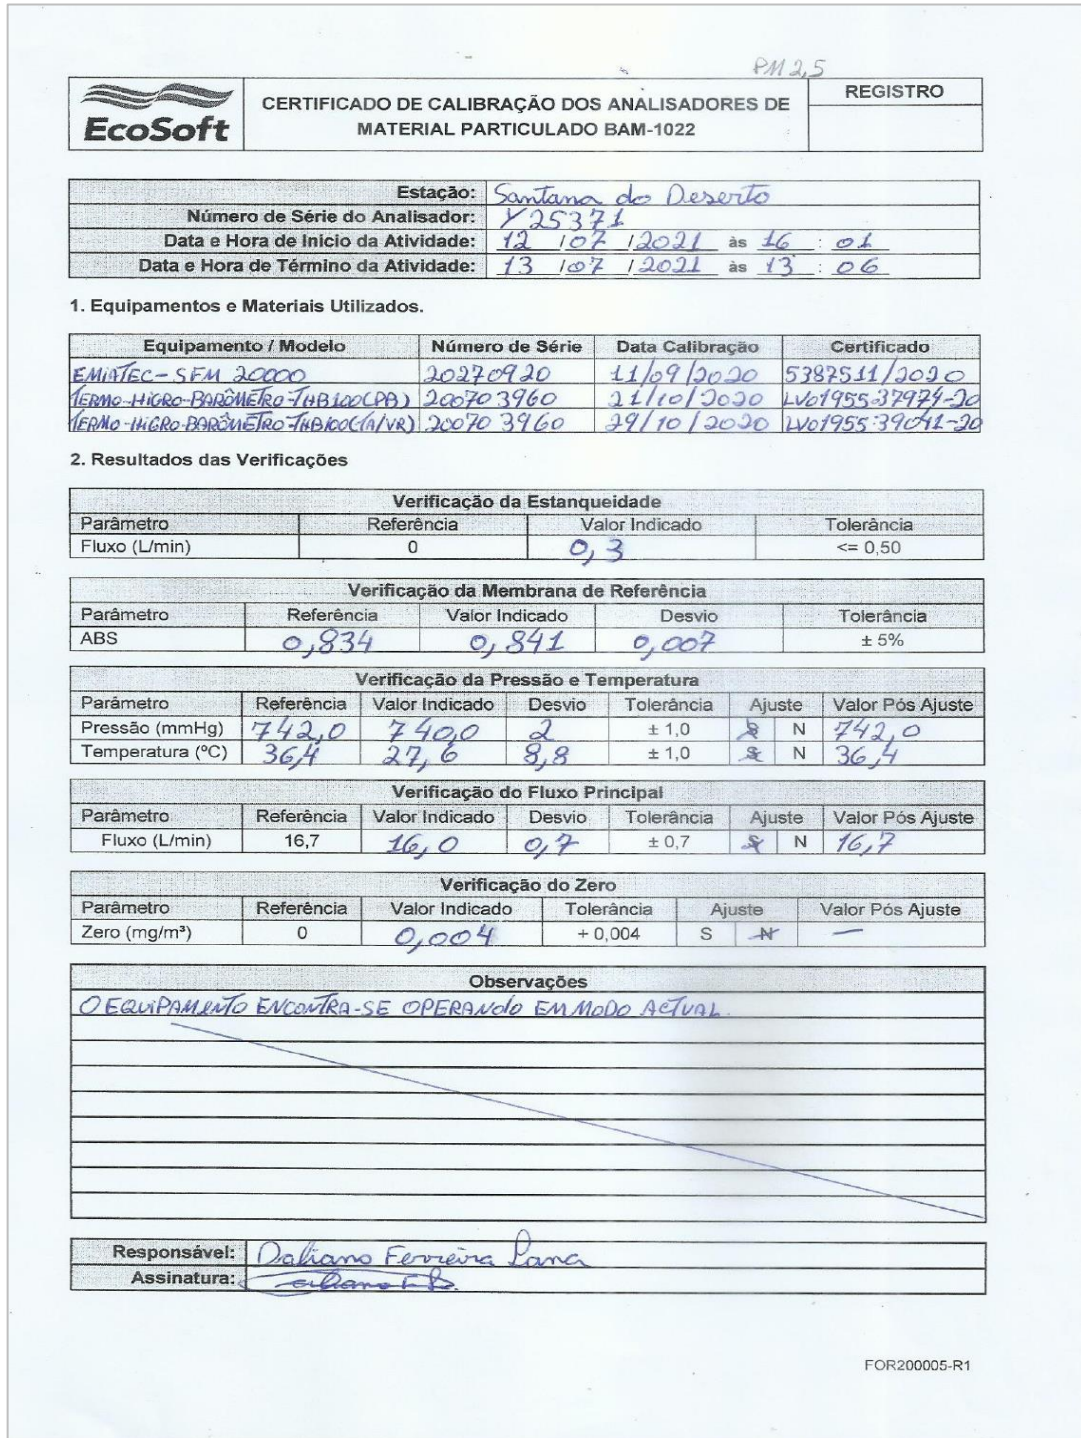 PM 2,5
EcoSoft
CERTIFICADO DE CALIBRAÇÃO DOS ANALISADORES DE
MATERIAL PARTICULADO BAM-1022
REGISTRO
Estação: Santana do Deserto
Número de Série do Analisador: Y25371
Data e Hora de Início da Atividade: 12 /07 /2021 às 16 : 01
Data e Hora de Término da Atividade: 13 /07 /2021 às 13 : 06
1. Equipamentos e Materiais Utilizados.
Equipamento / Modelo Número de Série Data Calibração Certificado
EMIATEC-SFM 20000 20270920 11/09/2020 5387511/2020
TERMO-HIGRO-BARÔMETRO-THB100(PB) 200703960 21/10/2020 LV01955-37974-20
TERMO-HIGRO-BARÔMETRO-THB100(TA/VR) 20070 3960 29/10/2020 LV01955-39041-20
2. Resultados das Verificações
Verificação da Estanqueidade
Parâmetro Referência Valor Indicado Tolerância
Fluxo (L/min) 0 0,3 <= 0,50
Verificação da Membrana de Referência
Parâmetro Referência Valor Indicado Desvio Tolerância
ABS 0,834 0,841 0,007 ± 5%
Verificação da Pressão e Temperatura
Parâmetro Referência Valor Indicado Desvio Tolerância Ajuste Valor Pós Ajuste
Pressão (mmHg) 742,0 740,0 2 ± 1,0 S N 742,0
Temperatura (ºC) 36,4 27,6 8,8 ± 1,0 S N 36,4
Verificação do Fluxo Principal
Parâmetro Referência Valor Indicado Desvio Tolerância Ajuste Valor Pós Ajuste
Fluxo (L/min) 16,7 16,0 0,7 ± 0,7 S N 16,7
Verificação do Zero
Parâmetro Referência Valor Indicado Tolerância Ajuste Valor Pós Ajuste
Zero (mg/m³) 0 0,004 + 0,004 S N —
Observações
O EQUIPAMENTO ENCONTRA-SE OPERANDO EM MODO ACTUAL.
Responsável: Daliano Ferreira Lana
Assinatura:
FOR200005-R1